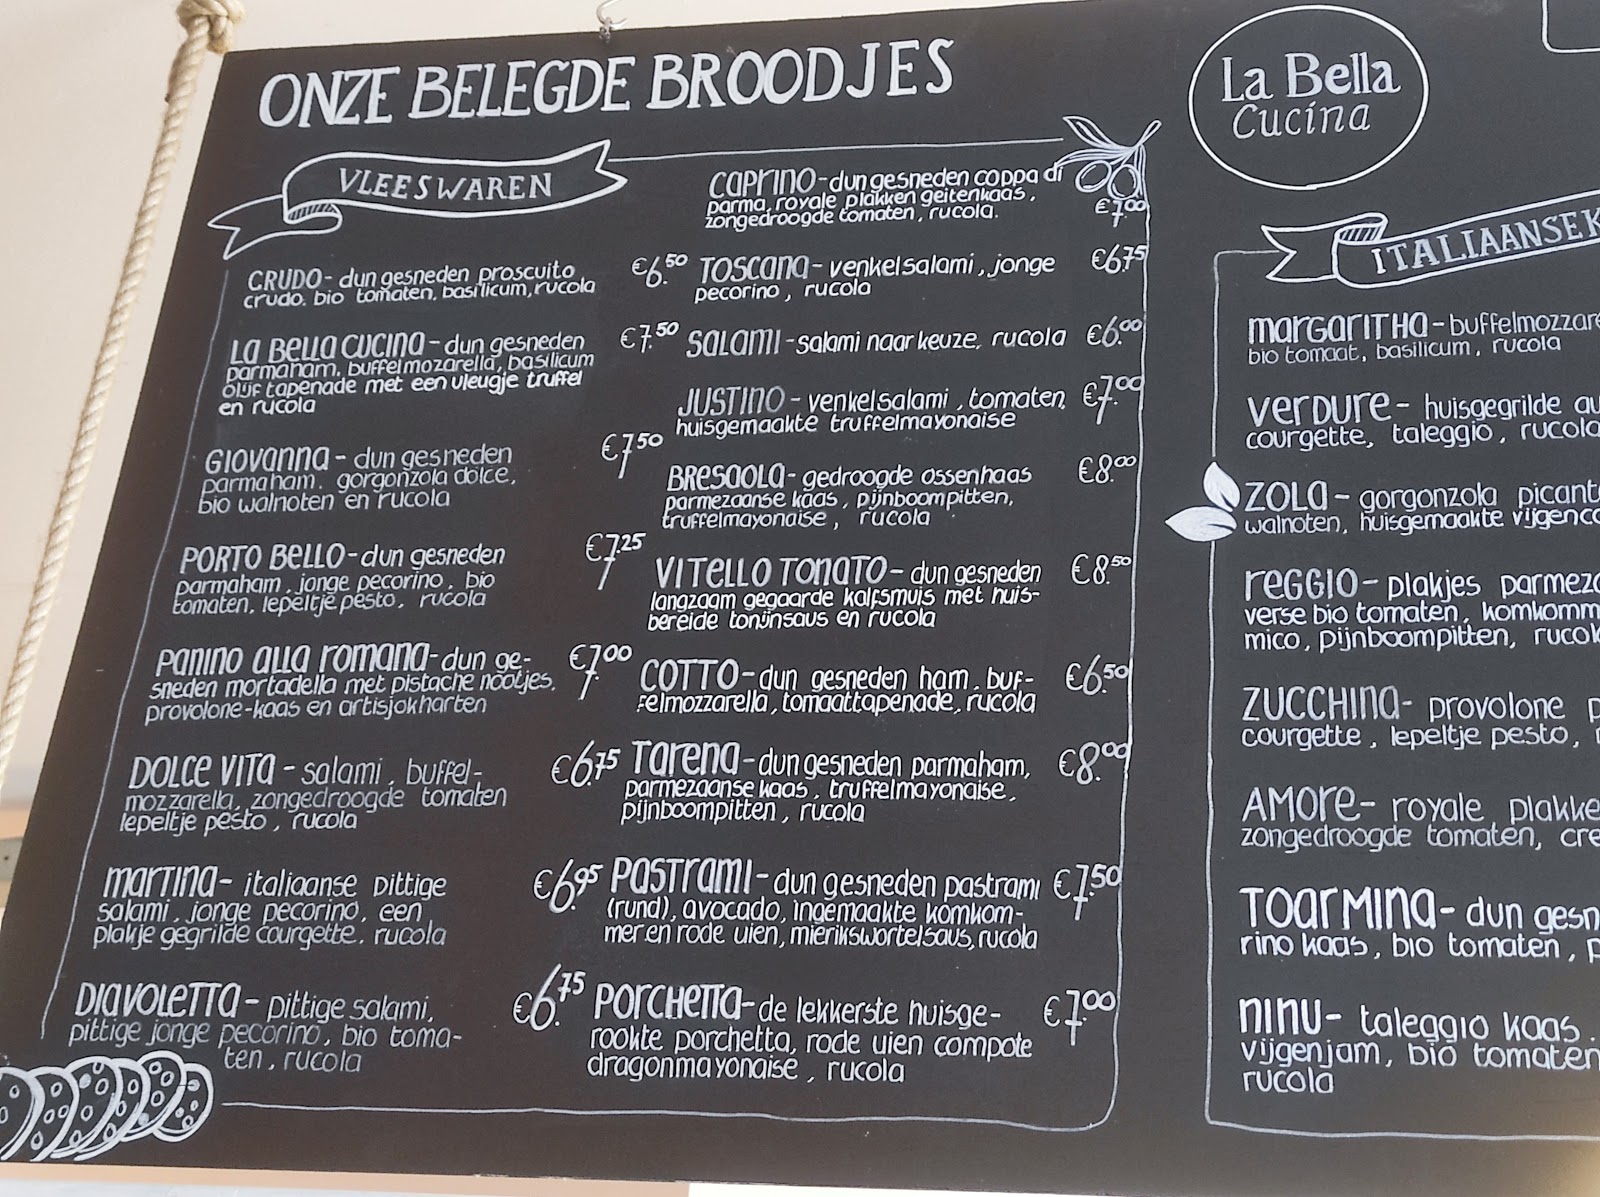 ONZE BELEGDE BROODJES
VLEESWAREN
CRUDO- dun gesneden proscuito
crudo. bio tomaten, basilicum, rucola
€6.50
La Bella Cucina - dun gesneden
parmaham, buffelmozarella, basilicum
olijf tapenade met een vleugje truffel
en rucola
€7.50
Giovanna - dun gesneden
parmaham. gorgonzola dolce,
bio walnoten en rucola
€7.50
PORTO BELLO - dun gesneden
parmaham, jonge pecorino, bio
tomaten, lepeltje pesto, rucola
€7.25
Panino alla romana - dun ge-
sneden mortadella met pistache nootjes,
provolone-kaas en artisjokharten
€7.00
DOLCE VITA - salami, buffel-
mozzarella, zongedroogde tomaten
lepeltje pesto, rucola
€6.75
Martina - italiaanse pittige
salami, jonge pecorino, een
plakje gegrilde courgette. rucola
€6.95
Diavoletta - pittige salami,
pittige jonge pecorino, bio toma-
ten, rucola
€6.75
Caprino - dun gesneden coppa di
parma, royale plakken geitenkaas,
zongedroogde tomaten, rucola.
€7.00
Toscana - venkelsalami, jonge
pecorino, rucola
€6.75
Salami - salami naar keuze, rucola
€6.00
JUSTINO - venkelsalami, tomaten,
huisgemaakte truffelmayonaise
€7.00
Bresaola - gedroogde ossenhaas
parmezaanse kaas, pijnboompitten,
truffelmayonaise, rucola
€8.00
VITELLO TONATO - dun gesneden
langzaam gegaarde kalfsmuis met huis-
bereide tonijnsaus en rucola
€8.50
COTTO - dun gesneden ham, buf-
felmozzarella, tomaattapenade, rucola
€6.50
Tarena - dun gesneden parmaham,
parmezaanse kaas, truffelmayonaise,
pijnboompitten, rucola
€8.00
Pastrami - dun gesneden pastrami
(rund), avocado, ingemaakte komkom-
mer en rode uien, mierikswortelsaus, rucola
€7.50
Porchetta - de lekkerste huisge-
rookte porchetta, rode uien compote
dragonmayonaise, rucola
€7.00
La Bella
Cucina
ITALIAANSE K
Margaritha - buffelmozzare
bio tomaat, basilicum, rucola
Verdure - huisgegrilde au
courgette, taleggio, rucola
ZOLA - gorgonzola picant
walnoten, huisgemaakte vijgenco
Reggio - plakjes parmeza
verse bio tomaten, komkomm
mico, pijnboompitten, rucol
ZUCCHINA - provolone p
courgette, lepeltje pesto,
AMORE - royale plakke
zongedroogde tomaten, cre
TOARMINA - dun gesn
rino kaas, bio tomaten, p
NINU - taleggio kaas.
vijgenjam, bio tomaten
rucola